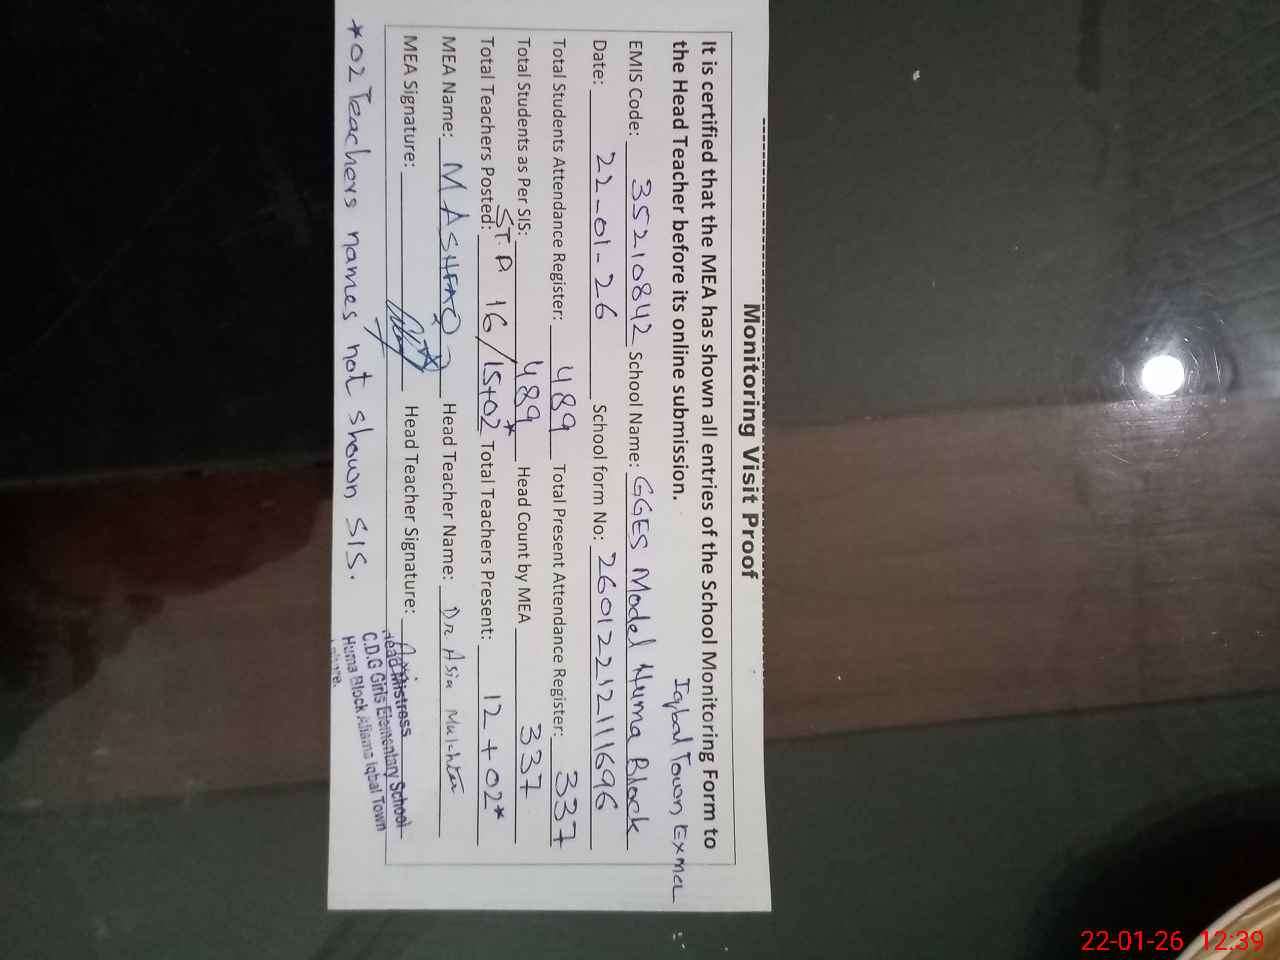 Monitoring Visit Proof
It is certified that the MEA has shown all entries of the School Monitoring Form to
the Head Teacher before its online submission.
Iqbal Town, Ex MCL
EMIS Code: 35210842 School Name: GGES Model Huma Block
Date: 22-01-26 School form No: 26012212111696
Total Students Attendance Register: 489 Total Present Attendance Register: 337
Total Students as Per SIS: 489 Head Count by MEA 337
Total Teachers Posted: 16/15+02* Total Teachers Present: 12+02*
MEA Name: M ASHFAQ Head Teacher Name: Dr. Asia Mukhtar
MEA Signature: Head Teacher Signature:
Head Mistress
C.D.G Girls Elementary School
Huma Block Allama Iqbal Town
Lahore.
*02 Teachers names not shown SIS.
22-01-26 12:39